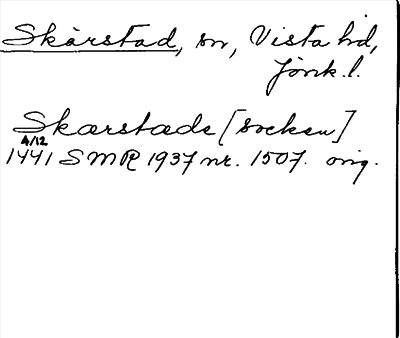 Skärstad, sn, Vista hd,
Jönk. l.
Skærstade [socken]
4/12
1441 SMR 1937 nr. 1507. orig.